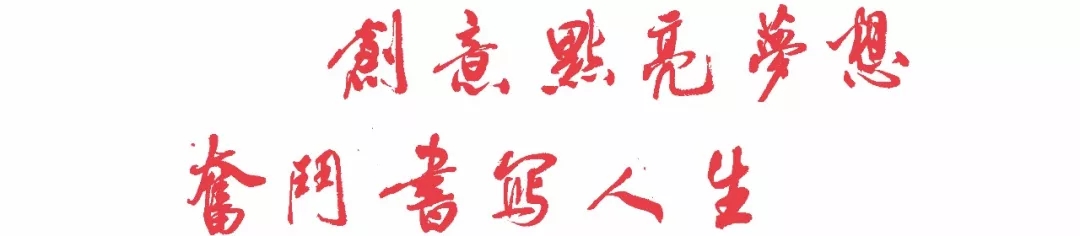 創意點亮夢想
奮鬥書寫人生